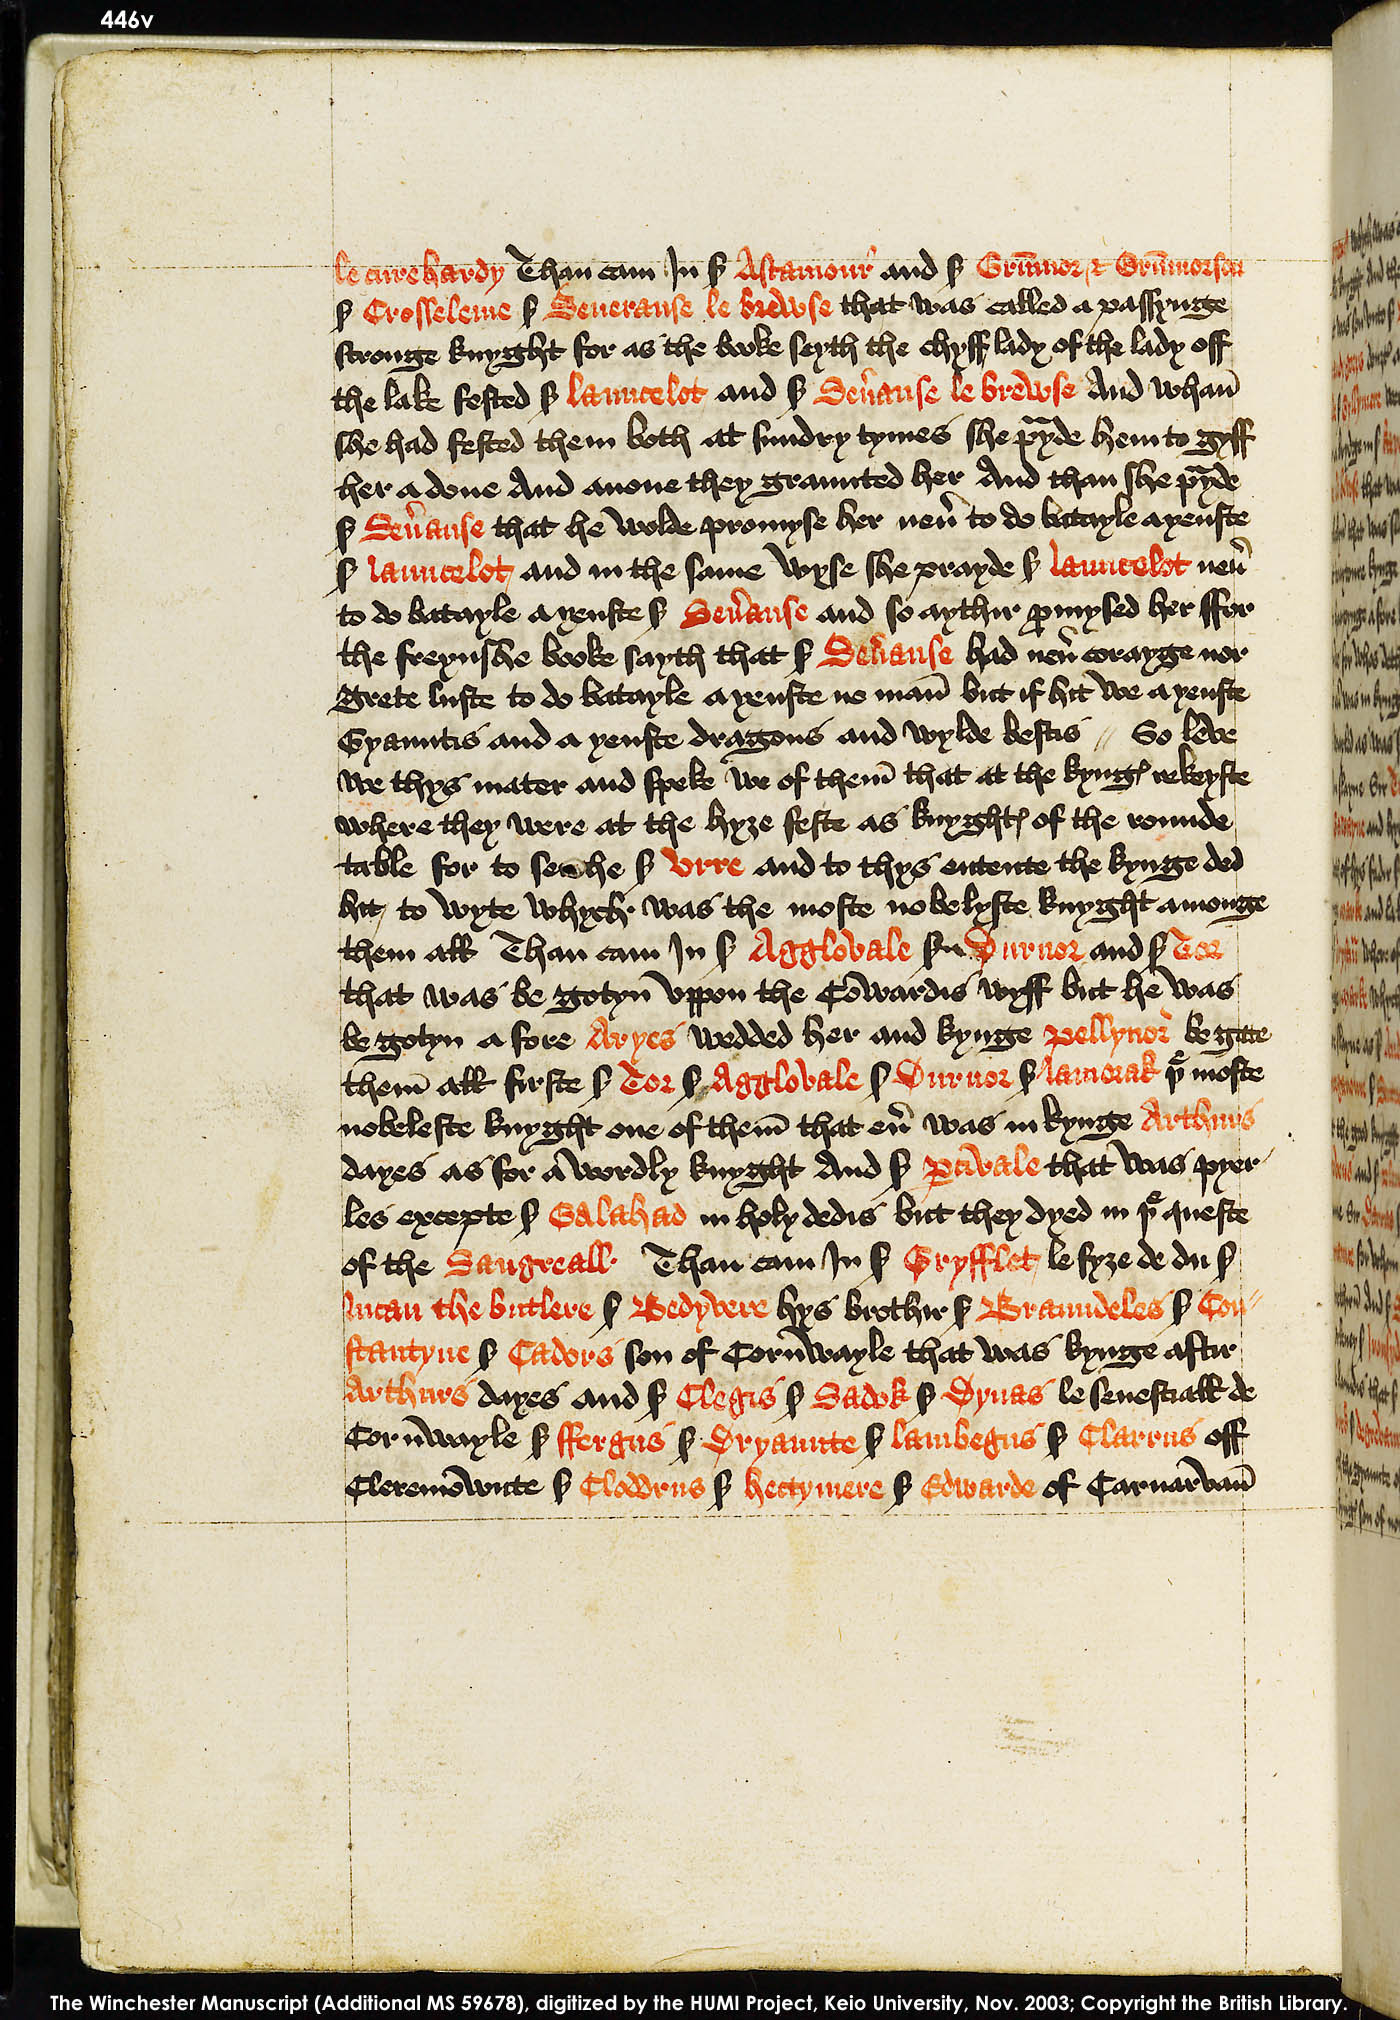 446v
le cure hardy Than cam In ẜ Astamour and ẜ Grūmor & Grūmorson
ẜ Crosseleme ẜ Seuerause le brewse that was called a passynge
stronge knyght for as the booke seyth the chyff lady of the lady off
the lake fested ẜ launcelot and ẜ Seũause le brewse And whan̄
she had fested them both at sundry tymes she p̄yde hem to gyff
her a done And anone they graunted her And than she p̄yde
ẜ Seũause that he wolde promyse her neũ to do batayle ayenste
ẜ launcelot and in the same wyse she prayde ẜ launcelot neũ
to do batayle ayenste ẜ Seũause and so aythir ꝓmysed her ffor
the freynshe booke sayth that ẜ Seũause had neũ corayge nor
grete luste to do batayle ayenste no man̄ but if hit we ayenste
Gyauntis and a yenste dragons and wylde bestis // So leve
we thys mater and speke we of them̄ that at the kyngꝭ rekeyste
where they were at the hyze feste as knyghtꝭ of the rounde
table for to serche ẜ Vrre and to thys entente the kynge ded
hit to wyte whych was the moste nobelyste knyght amonge
them all Than cam In ẜ Agglovale ẜ Durnor and ẜ Tor
that was be gotyn̄ vppon the Cowardis wyff but he was
be gotyn a fore Aryes wedded her and kynge pellynor be gate
them̄ all firste ẜ Tor ẜ Agglovale ẜ Durnor ẜ lamorak þᵉ moste
nobeleste knyght one of them̄ that eũ was in kynge Arthurs
dayes as for a wordly knyght And ẜ ꝑcivale that was pyer
les excepte ẜ Galahad in holy dedis but they dyed in þᵉ queste
of the Sangreall Than cam In ẜ Gryfflet le fyze de du ẜ
lucan the butlere ẜ Bedyvere hys brothir ẜ Braundeles ẜ Con//
stantyne ẜ Cadors son of Cornwayle that was kynge aftir
Arthurs dayes and ẜ Clegis ẜ Sadok ẜ Dynas le senesciall de
Cornwayle ẜ ffergus ẜ Dryaunte ẜ lambegus ẜ Clarrus off
Cleremownte ẜ Clodrus ẜ hectymere ẜ Edwarde of Carnarvan̄
The Winchester Manuscript (Additional MS 59678), digitized by the HUMI Project, Keio University, Nov. 2003; Copyright the British Library.